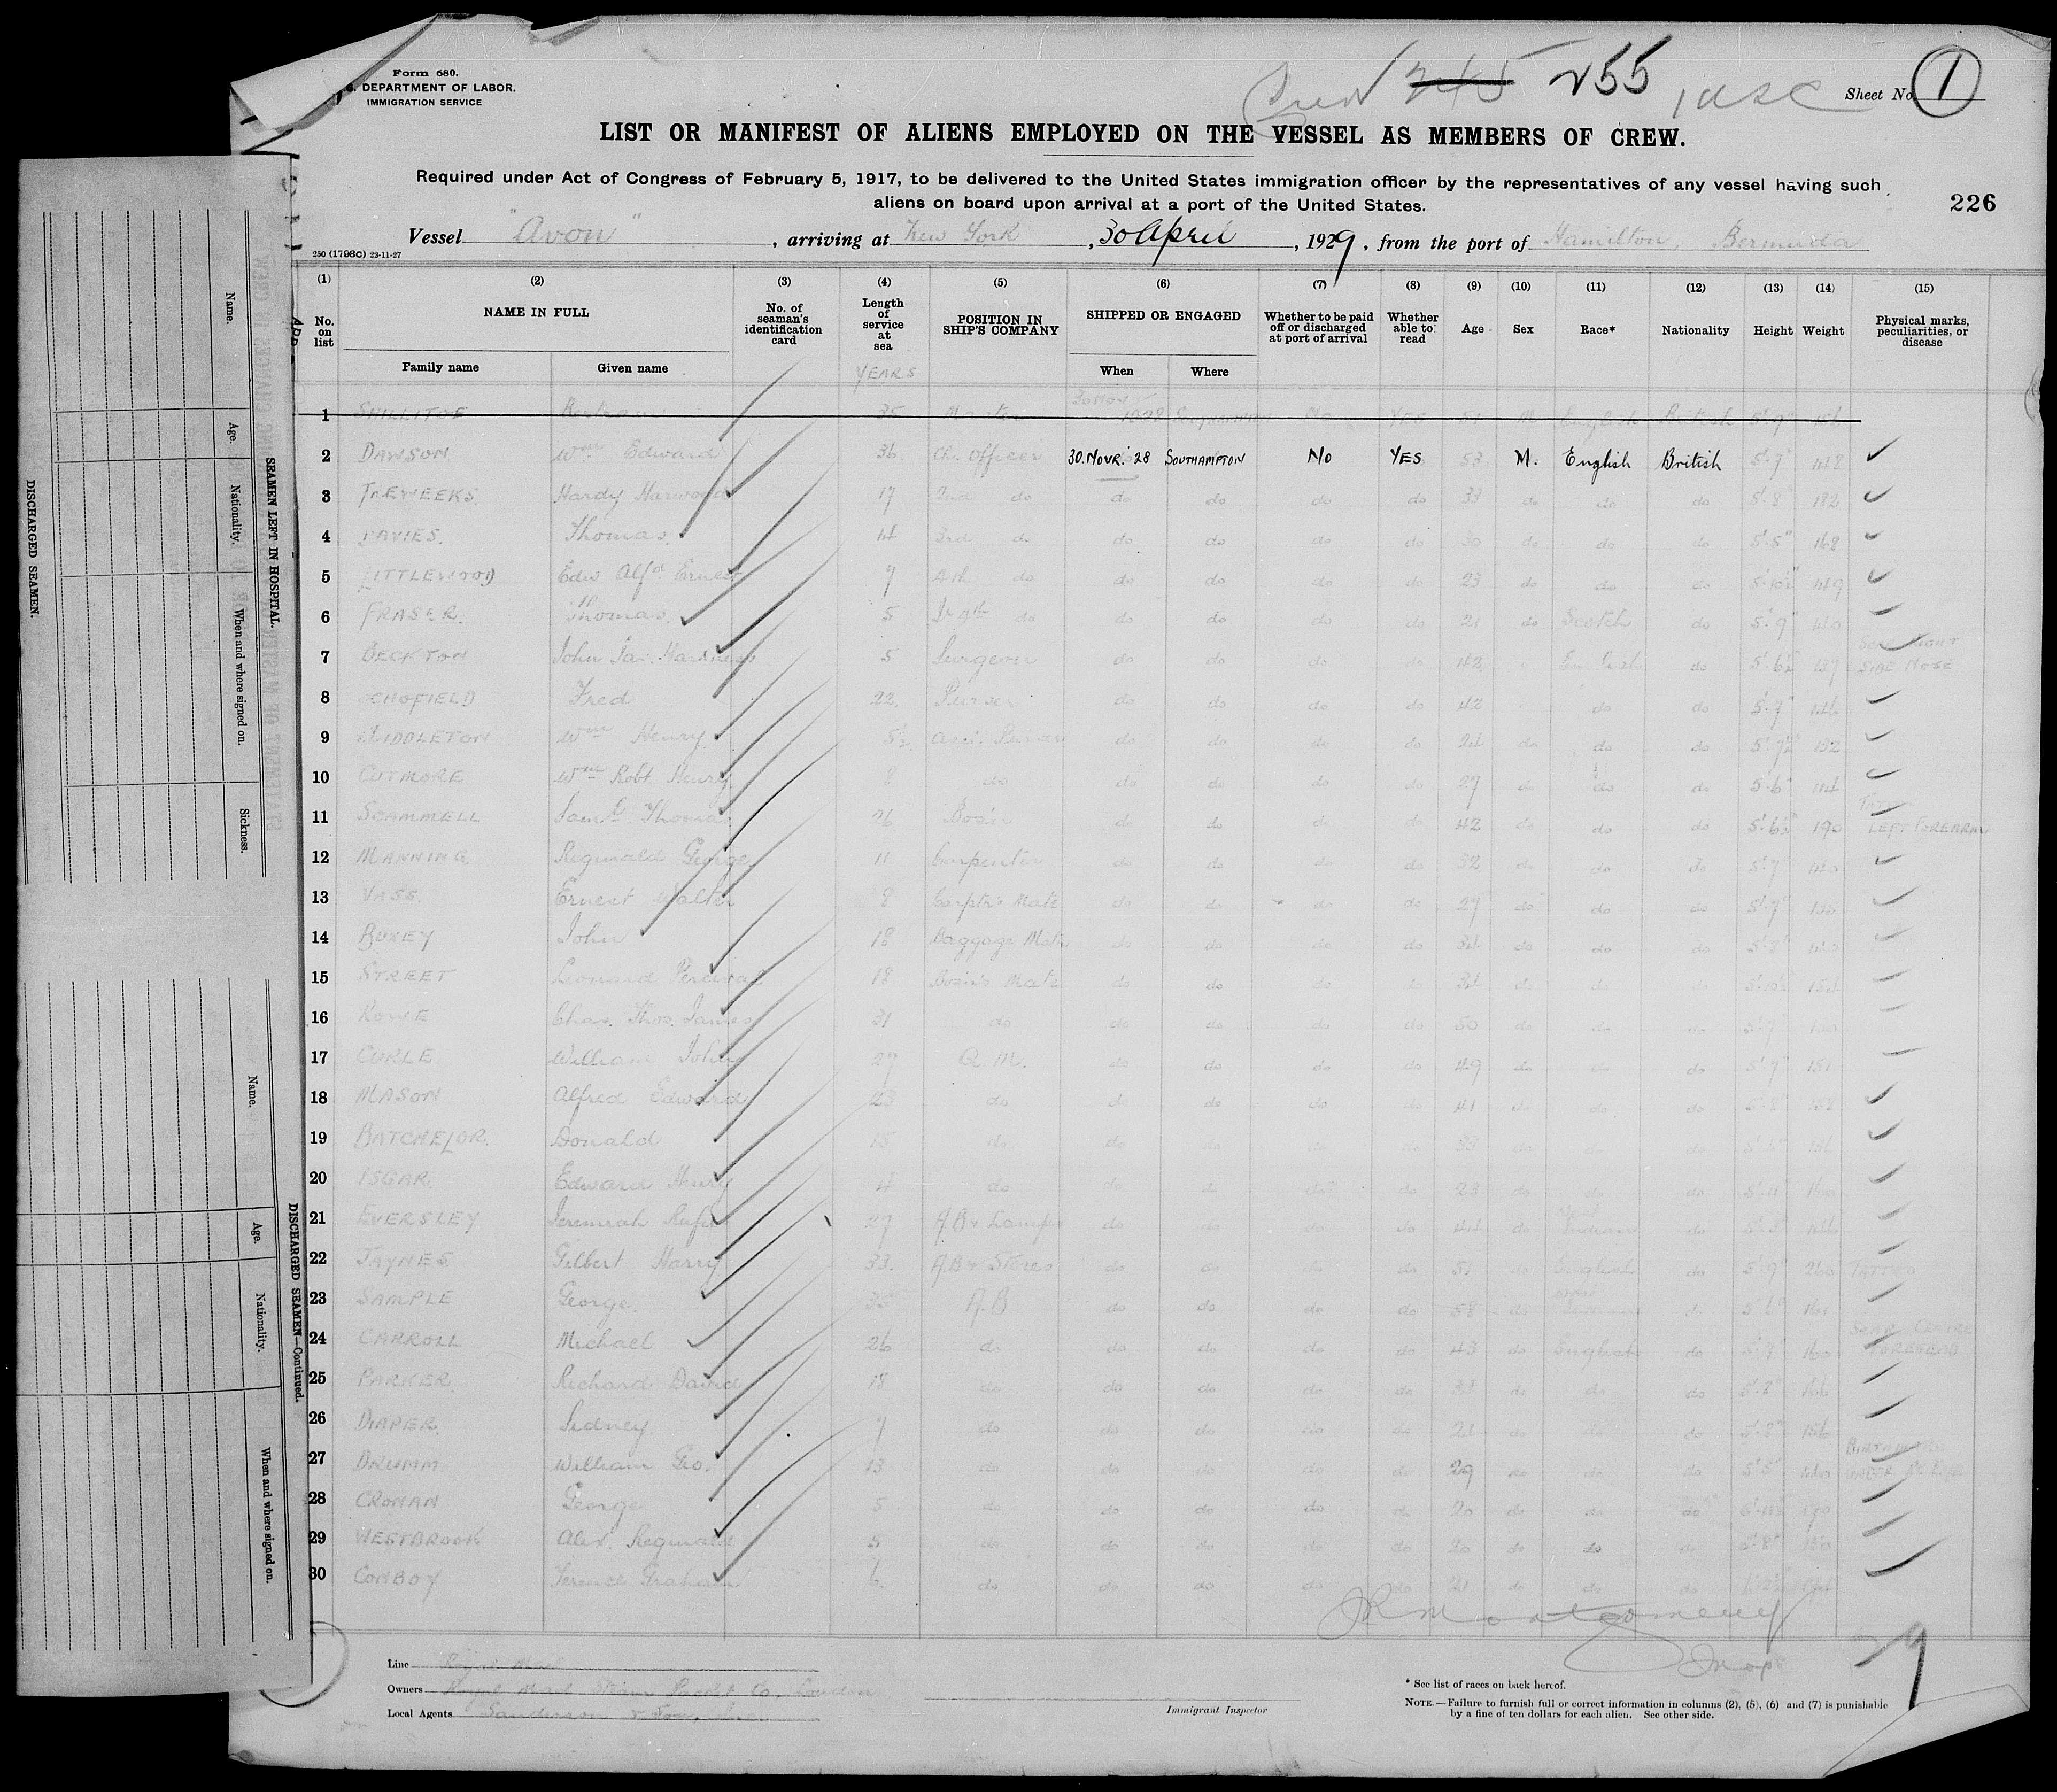 Form 680.
DEPARTMENT OF LABOR.
IMMIGRATION SERVICE
Crew 245 255 1 USC
Sheet No. 1
LIST OR MANIFEST OF ALIENS EMPLOYED ON THE VESSEL AS MEMBERS OF CREW.
Required under Act of Congress of February 5, 1917, to be delivered to the United States immigration officer by the representatives of any vessel having such
aliens on board upon arrival at a port of the United States.
226
Vessel "Avon", arriving at New York, 30 April, 1929, from the port of Hamilton, Bermuda
250 (1798C) 22-11-27
(1) (2) (3) (4) (5) (6) (7) (8) (9) (10) (11) (12) (13) (14) (15)
No. on list NAME IN FULL No. of seaman's identification card Length of service at sea POSITION IN SHIP'S COMPANY SHIPPED OR ENGAGED Whether to be paid off or discharged at port of arrival Whether able to read Age Sex Race* Nationality Height Weight Physical marks, peculiarities, or disease
Family name Given name YEARS When Where
1 SHILLITOE Bertram 35 Master 1928 Southampton No YES 51 M English British 5' 9"
2 DAWSON Wm Edward 36 Ch. Officer 30. NOVR. 28 SOUTHAMPTON No YES 53 M. English British 5' 7" 148
3 TREWEEKS Hardy Harwood 17 2nd do do do do do 33 do do do 5' 8" 182
4 DAVIES. Thomas. 14 3rd do do do do do 30 do do do 5' 5" 168
5 LITTLEWOOD Edw Alfd Ernest 7 4th do do do do do 23 do do do 5' 10½" 149
6 FRASER. Thomas. 5 Jr 4th do do do do do 21 do Scotch do 5' 9"
7 BECKTON John Jas. Harkness 5 Surgeon do do do do 42 English do 5' 6½" 137 SIDE NOSE
8 SCHOFIELD Fred 22. Purser do do do do 42 do do 5' 7" 146
9 MIDDLETON Wm Henry 5½ Asst. Purser do do do do 24 do do do 5' 7½" 132
10 CUTMORE Wm Robt. Henry 8 do do do do do 27 do do do 5' 6"
11 SCAMMELL Saml. Thomas 26 Bos'n do do do do 42 do do do 5' 6½" 190 LEFT FOREARM
12 MANNING Reginald George 11 Carpenter do do do do 32 do do do 5' 7" 140
13 VASS. Ernest Walter 8 Carptr's Mate do do do do 27 do do do 5' 7"
14 BUXEY John 18 Baggage Mstr do do do do 34 do do do 5' 8"
15 STREET Leonard Percival 18 Bos'n's Mate do do do do 34 do do do 5' 10½"
16 ROWE Chas. Thos. James 31 do do do do do 50 do do do 5' 7"
17 CURLE William John 27 Q. M. do do do do 49 do do do 5' 7" 151
18 MASON Alfred Edward 23 do do do do do 41 do do do 5' 8"
19 BATCHELOR. Donald 15 do do do do 33 do do do
20 ISGAR. Edward Henry 4 do do do do do 23 do do do 5' 11"
21 EVERSLEY Jeremiah Rufus 27 A B & Lamps do do do do 44 do Indian do 5' 5"
22 JAYNES Gilbert Harry 33. A B & Stores do do do do 51 do English do 5' 9" 260 TATTOO
23 SAMPLE George. 35 A. B do do do do 58 do Indian do
24 CARROLL Michael 26 do do do do do 43 do English do 5' 9" 160 SCAR CENTRE FOREHEAD
25 PARKER Richard David 18 do do do do do 34 do do do 5' 8"
26 DIAPER Sidney 7 do do do do do 21 do do do 5' 8" 156
27 DRUMM William Geo. 13 do do do do do 29 do do do 5' 5"
28 CRONAN George 5 do do do do do 20 do do do
29 WESTBROOK Alex. Reginald 5 do do do do do 20 do do do 5' 8"
30 CONBOY Terence Graham 6. do do do do do 21 do do do
JR Montgomery
Insp
Line Royal Mail
Owners Royal Mail Steam Packet Co. London
Local Agents Sanderson & Son, Inc.
Immigrant Inspector
* See list of races on back hereof.
NOTE.—Failure to furnish full or correct information in columns (2), (5), (6) and (7) is punishable
by a fine of ten dollars for each alien. See other side.
DISCHARGED SEAMEN.
SEAMEN LEFT IN HOSPITAL.
Name. Age. Nationality. When and where signed on. Sickness.
DISCHARGED SEAMEN—Continued.
Name. Age. Nationality. When and where signed on.